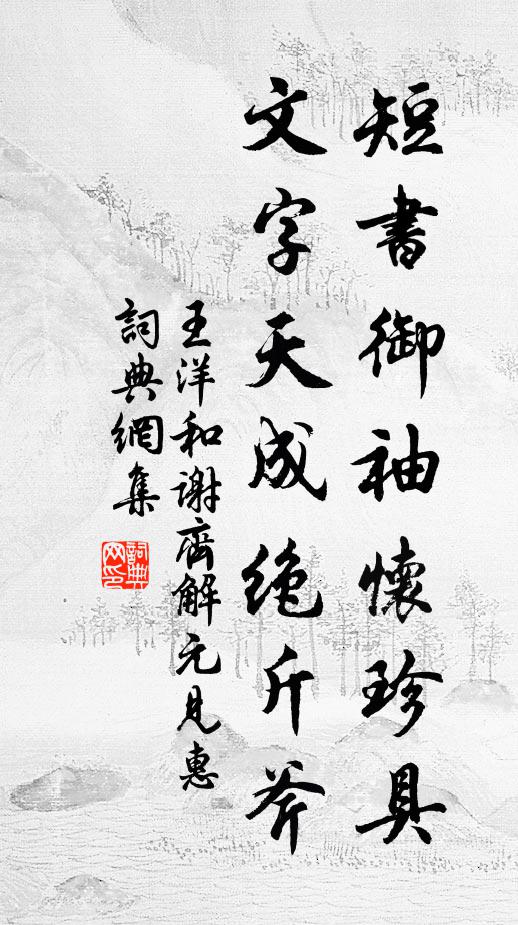 短書御袖懷珍具
文字天成絶斤斧
王洋和謝齊解元見惠
詞典網集
詞典网印